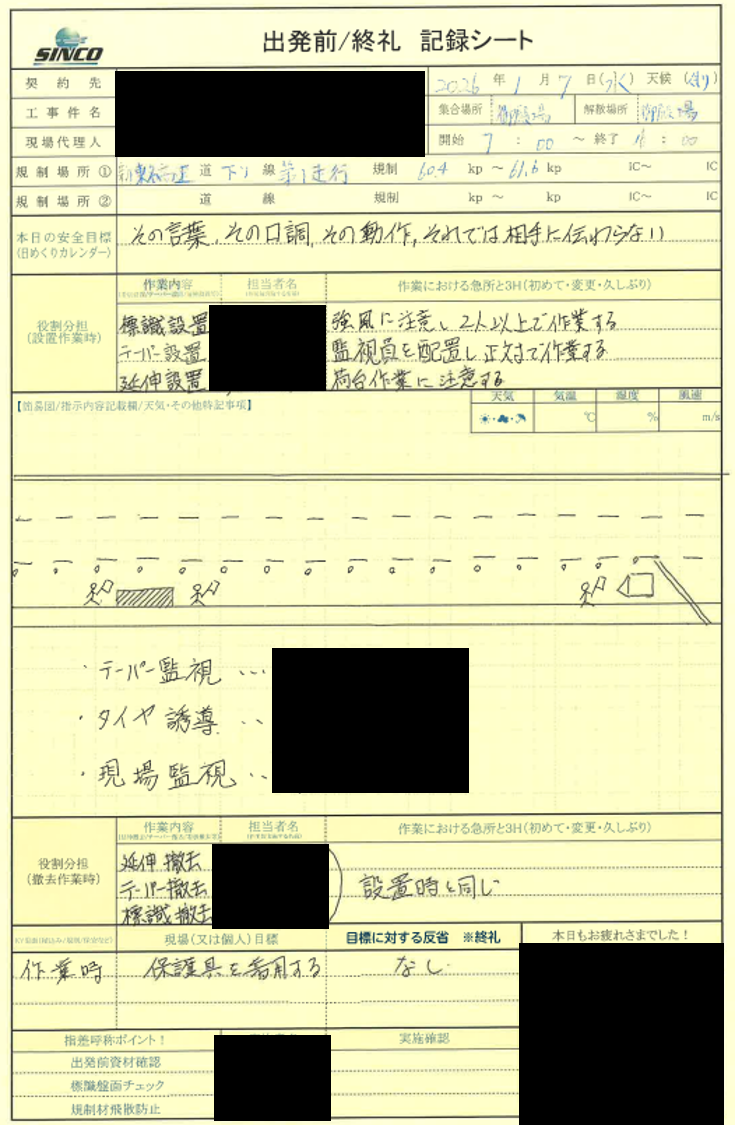 SINCO
出発前/終礼 記録シート
契約先
2026 年 1 月 7 日(水) 天候 (晴り)
工事件名
集合場所 御殿場 解散場所 御殿場
現場代理人
開始 7 : 00 ～ 終了 : 00
規制場所① 新東名高速 道 下り 線 第1走行 規制 60.4 kp ～ 61.6 kp IC～ IC
規制場所② 道 線 規制 kp ～ kp IC～ IC
本日の安全目標
(日めくりカレンダー)
その言葉、その口調、その動作、それでは相手に伝わらない
役割分担
(設置作業時)
作業内容 担当者名 作業における急所と3H(初めて・変更・久しぶり)
標識設置 強風に注意し2人以上で作業する
テーパー設置 監視員を配置し正対で作業する
延伸設置 荷台作業に注意する
【簡易図/指示内容記載欄/天気・その他特記事項】
天気 気温 湿度 風速
℃ % m/s
・テーパー監視 …
・タイヤ誘導 ‥
・現場監視 ‥
役割分担
(撤去作業時)
作業内容 担当者名 作業における急所と3H(初めて・変更・久しぶり)
延伸撤去
テーパー撤去 設置時と同じ
標識撤去
現場(又は個人)目標 目標に対する反省 ※終礼 本日もお疲れさまでした！
作業時 保護具を着用する なし
指差呼称ポイント！ 実施確認
出発前資材確認
標識盤面チェック
規制材飛散防止